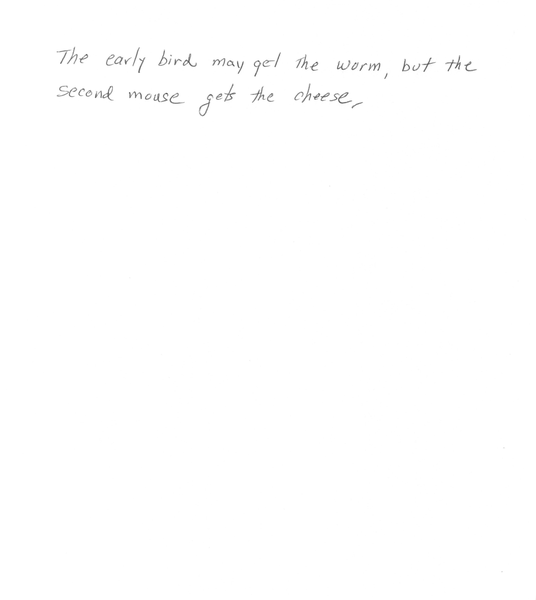 The early bird may get the worm, but the
second mouse gets the cheese,